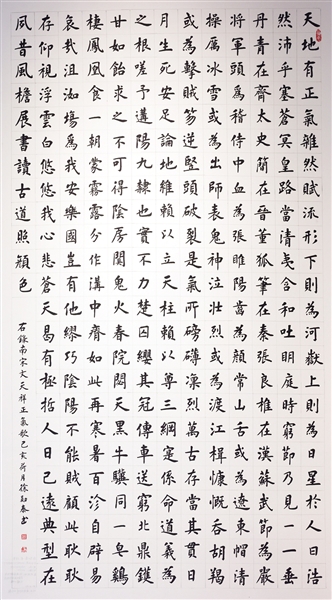 天地有正氣雜然賦流形下則為河嶽上則為日星於人曰浩
然沛乎塞蒼冥皇路當清夷含和吐明庭時窮節乃見一一垂
丹青在齊太史簡在晉董狐筆在秦張良椎在漢蘇武節為嚴
將軍頭為嵇侍中血為張睢陽齒為顏常山舌或為遼東帽清
操厲冰雪或為出師表鬼神泣壯烈或為渡江楫慷慨吞胡羯
或為擊賊笏逆豎頭破裂是氣所磅礴凜烈萬古存當其貫日
月生死安足論地維賴以立天柱賴以尊三綱實係命道義為
之根嗟予遘陽九隸也實不力楚囚纓其冠傳車送窮北鼎鑊
甘如飴求之不可得陰房闃鬼火春院閟天黑牛驥同一皂鷄
棲鳳凰食一朝蒙霧露分作溝中瘠如此再寒暑百沴自辟易
哀哉沮洳場為我安樂國豈有他繆巧陰陽不能賊顧此耿耿
存仰視浮雲白悠悠我心悲蒼天曷有極哲人日已遠典型在
夙昔風檐展書讀古道照顏色
右錄南宋文天祥正氣歌己亥荷月徐泰書